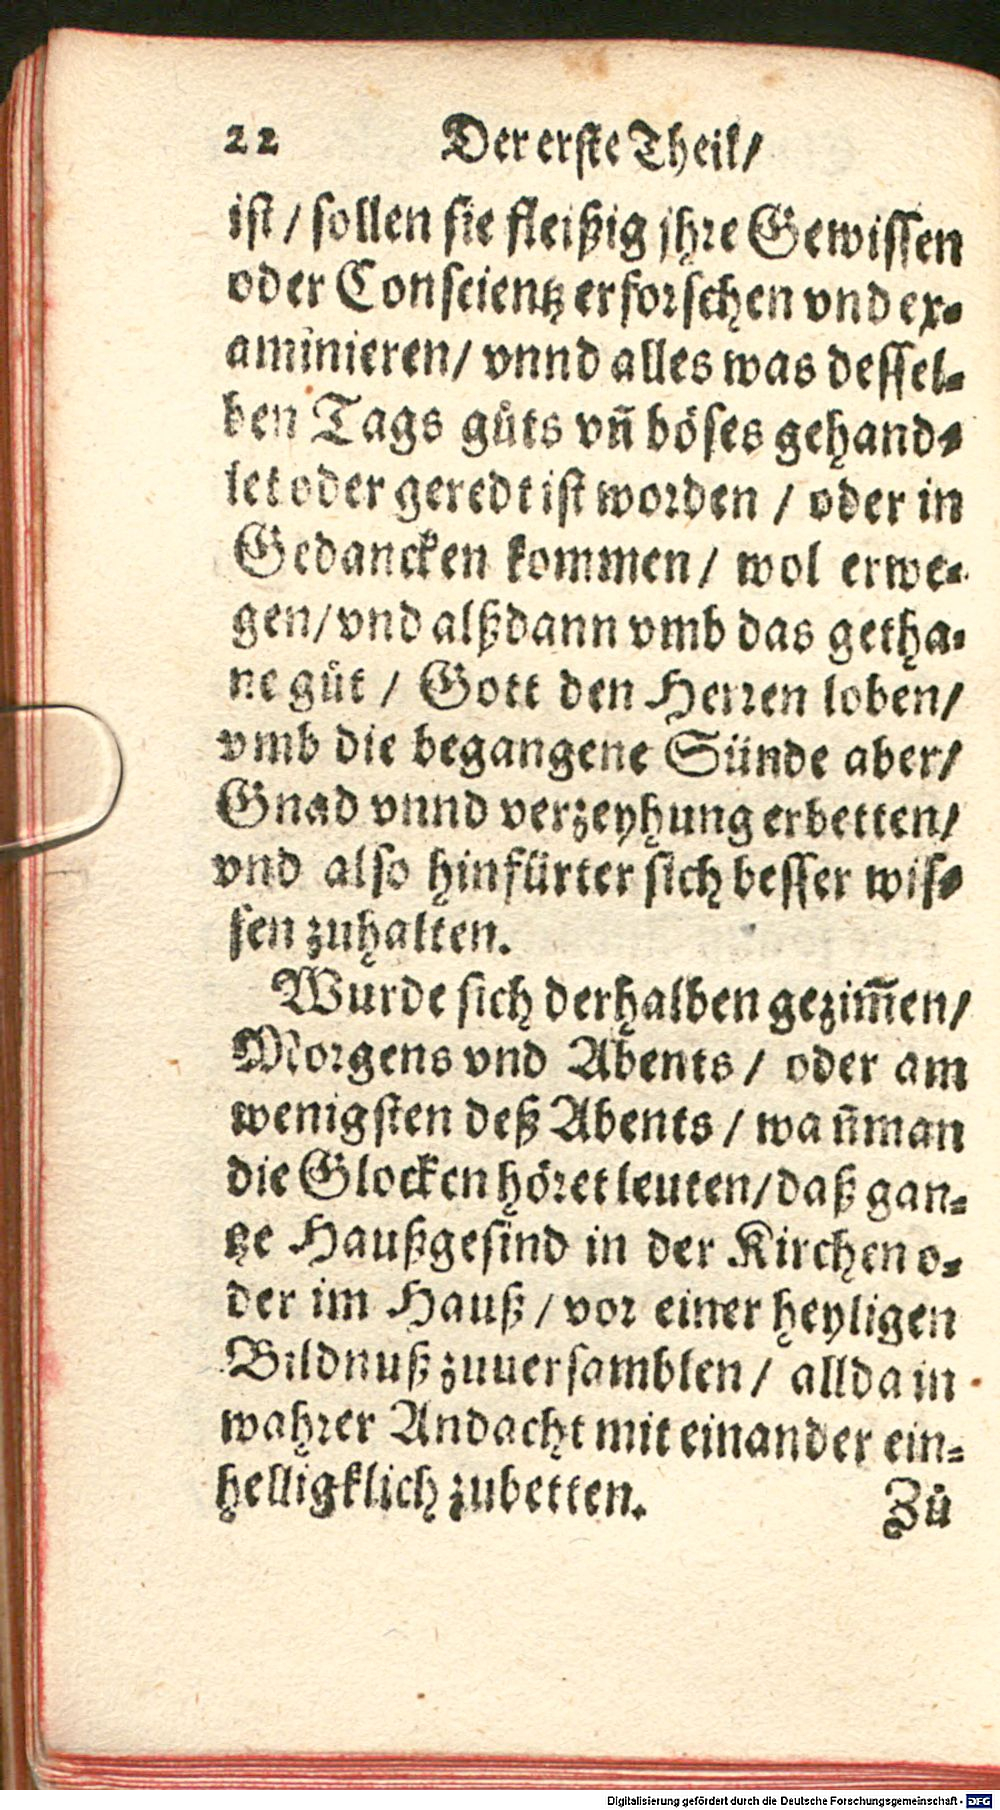 22 Der erste Theil/
ist / sollen sie fleißig jhre Gewissen
oder Conscientz erforschen vnd ex-
aminieren/ vnnd alles was dessel-
ben Tags gůts vñ böses gehand-
let oder geredt ist worden / oder in
Gedancken kommen/ wol erwe-
gen/ vnd alßdann vmb das getha-
ne gůt / Gott den Herren loben/
vmb die begangene Sünde aber/
Gnad vnnd verzeyhung erbetten/
vnd also hinfürter sich besser wis-
sen zuhalten.
Wurde sich derhalben gezim̃en/
Morgens vnd Abents / oder am
wenigsten deß Abents / wañ man
die Glocken höret leuten/ daß gan-
tze Haußgesind in der Kirchen o-
der im Hauß / vor einer heyligen
Bildnuß zuuersamblen / allda in
wahrer Andacht mit einander ein-
helligklich zubetten. Zů
Digitalisierung gefördert durch die Deutsche Forschungsgemeinschaft - DFG